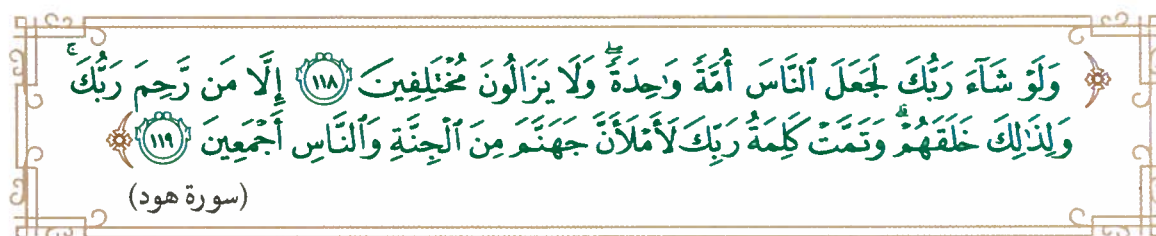 ﴿ وَلَوْ شَآءَ رَبُّكَ لَجَعَلَ ٱلنَّاسَ أُمَّةً وَٰحِدَةً ۖ وَلَا يَزَالُونَ مُخْتَلِفِينَ ١١٨ إِلَّا مَن رَّحِمَ رَبُّكَ ۚ
وَلِذَٰلِكَ خَلَقَهُمْ ۗ وَتَمَّتْ كَلِمَةُ رَبِّكَ لَأَمْلَأَنَّ جَهَنَّمَ مِنَ ٱلْجِنَّةِ وَٱلنَّاسِ أَجْمَعِينَ ١١٩ ﴾
(سورة هود)